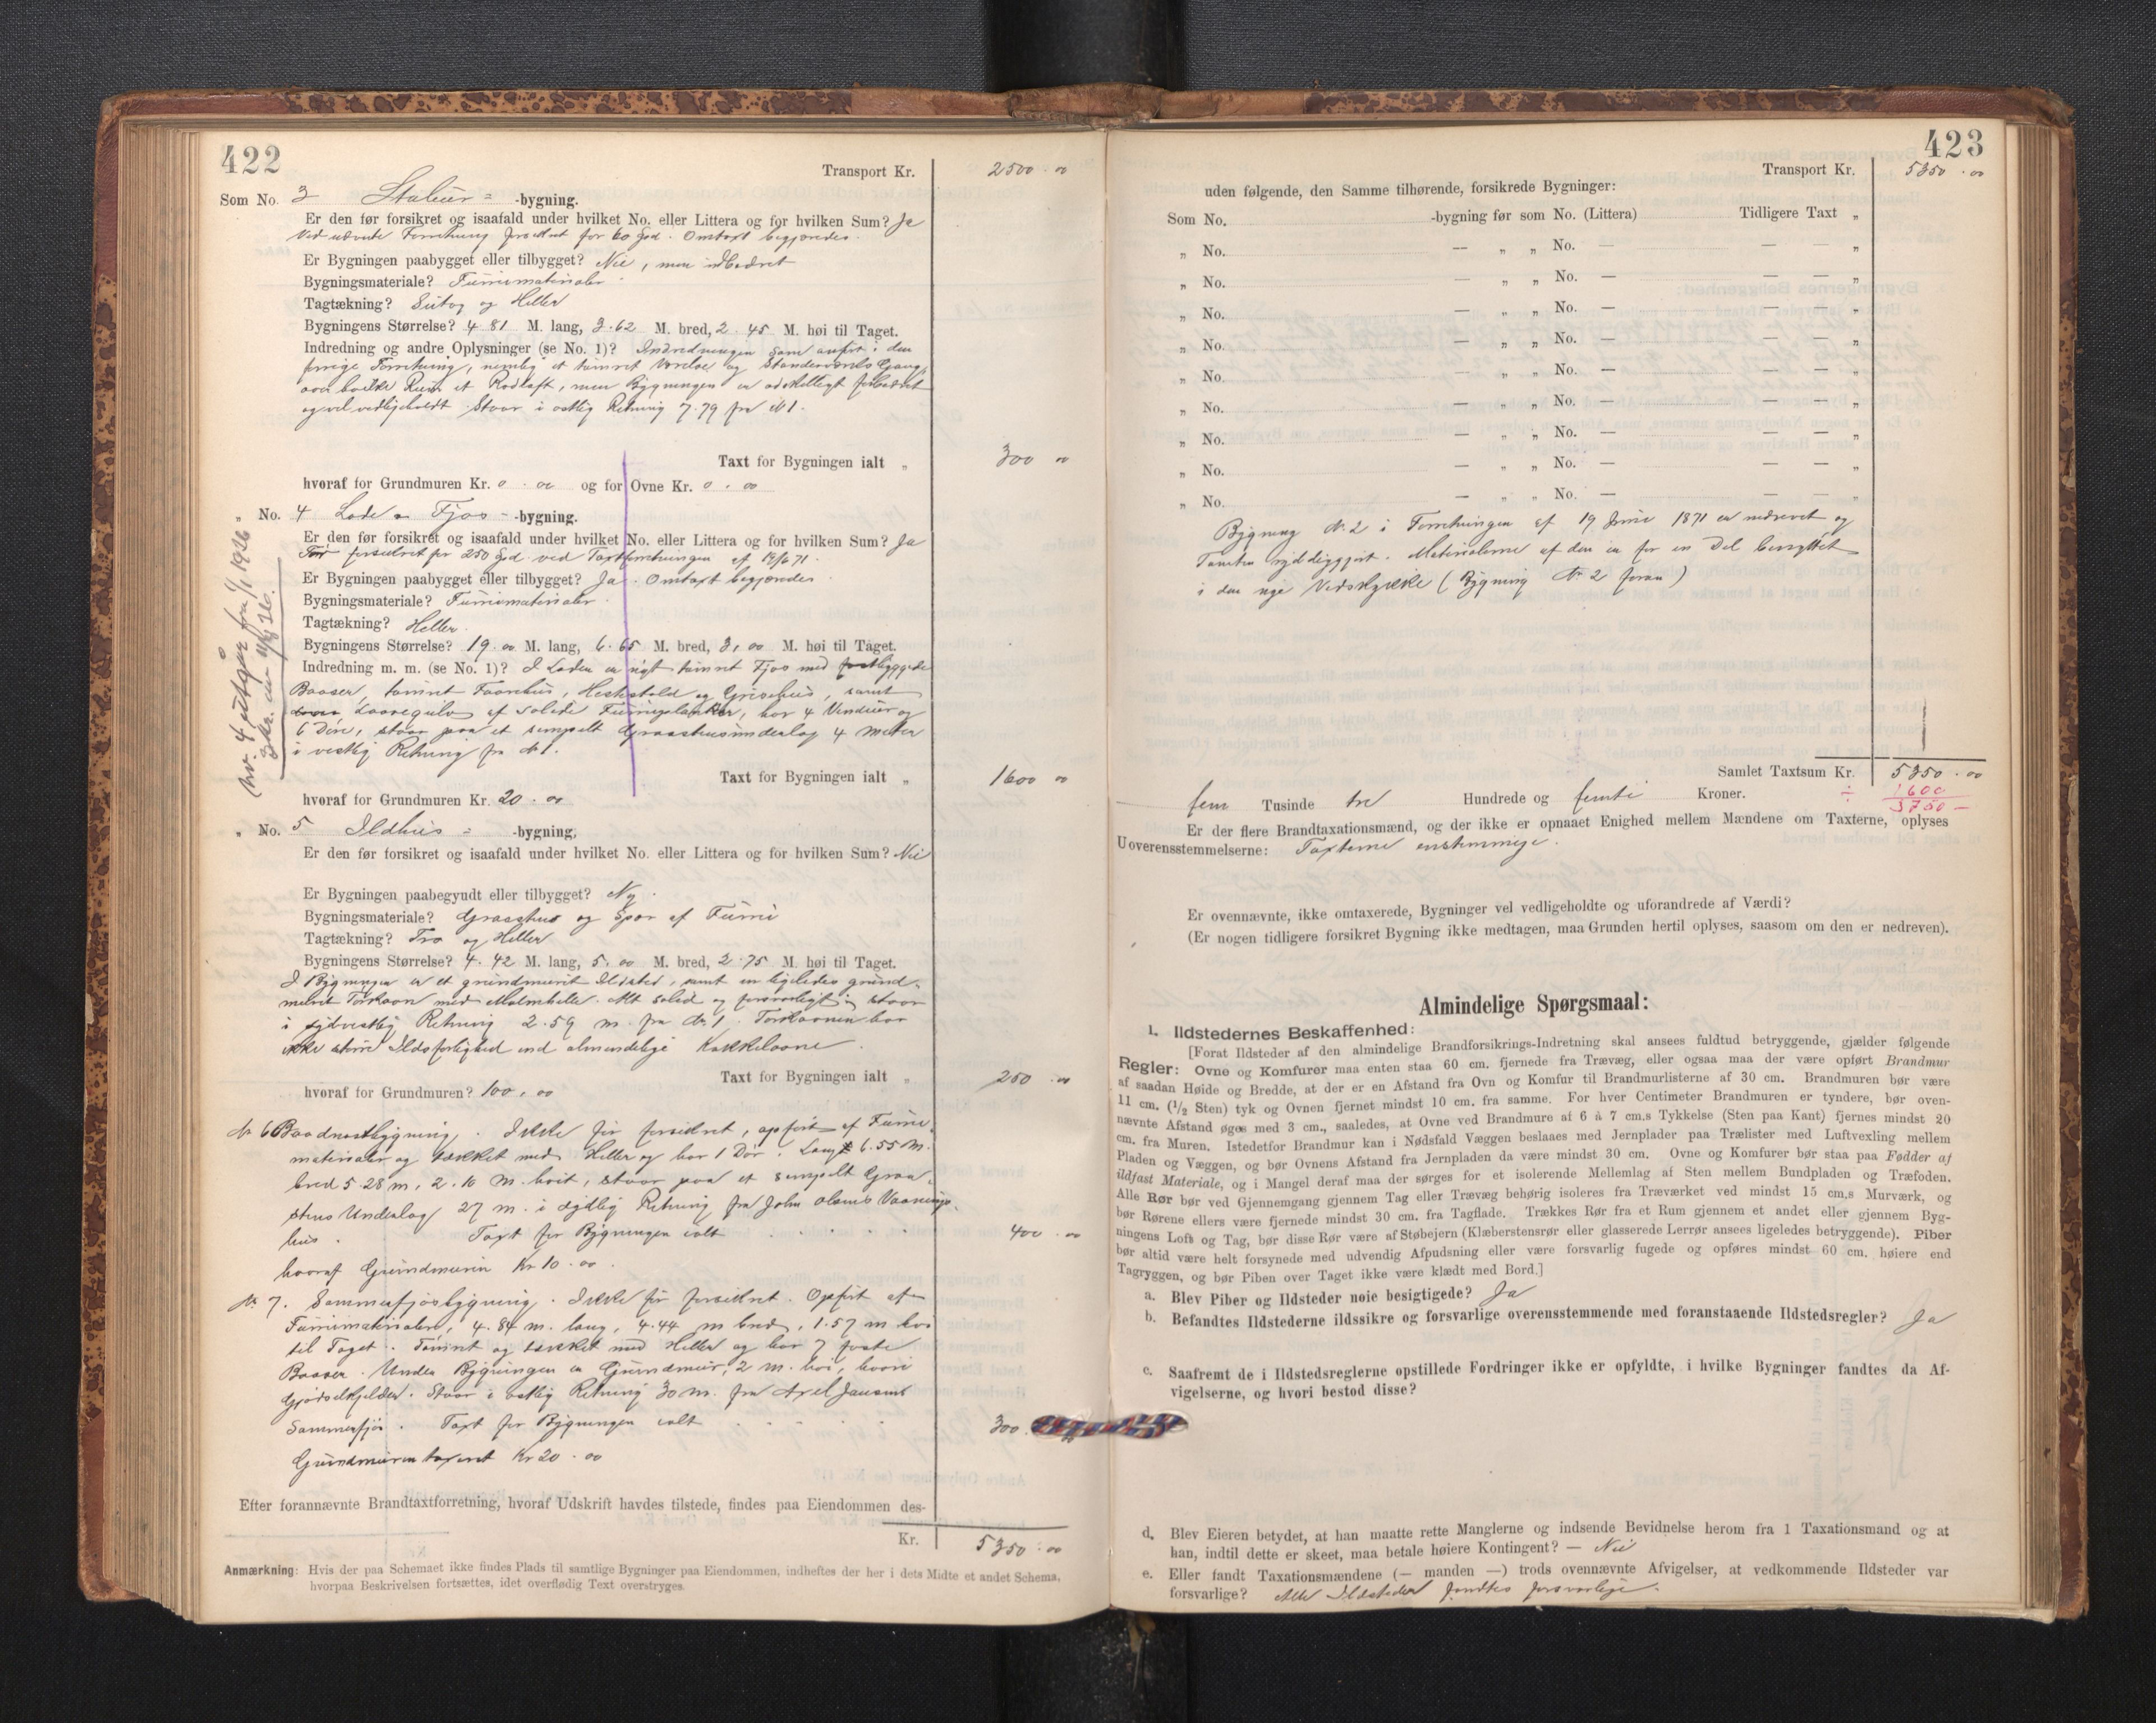 422
Transport Kr. 2500 . 00
Som No. 3 Stabur = -bygning.
Er den før forsikret og isaafald under hvilket No. eller Littera og for hvilken Sum? Ja
Ved nævnte Forretning forsikret for 60 Spd. Omtaxt begjæredes.
Er Bygningen paabygget eller tilbygget? Nei, men udbedret
Bygningsmateriale? Furumaterialer.
Tagtækning? Sutag og Heller
Bygningens Størrelse? 4 81 M. lang, 3.62 M. bred, 2.45 M. høi til Taget.
Indredning og andre Oplysninger (se No. 1)? Indredningen som anført i den
forrige Forretning, nemlig et tømret Værelse og Standerværks Gang,
over hvilke Rum et Rodloft, men Bygningen er adskilligt forbedret
og vel vedligeholdt. Staar i østlig Retning 7.79 fra No 1.
Taxt for Bygningen ialt „ 300 00
hvoraf for Grundmuren Kr. 0 . 00 og for Ovne Kr. 0 . 00
„ No. 4 Lade og Fjøs = -bygning.
Er den før forsikret og isaafald under hvilket No. eller Littera og for hvilken Sum? Ja
Før forsikret for 250 Spd. ved Taxtforretningen af 19/6 71.
Er Bygningen paabygget eller tilbygget? Ja. Omtaxt begjæredes.
Bygningsmateriale? Furumaterialer.
Tagtækning? Heller.
Bygningens Størrelse? 19.00 M. lang, 6.65 M. bred, 3,00 M. høi til Taget.
Indredning m. m. (se No. 1)? I Laden er nyt tømret Fjøs med fastbyggede
Baaser, tømret Faarehus, Hestestald og Grisehus, samt
Laavegulv af solide Furuplanker, har 4 Vinduer og
6 Døre, staar paa et simpelt Graastensunderlag 4 Meter
i vestlig Retning fra No 1.
Taxt for Bygningen ialt „ 1600 00
hvoraf for Grundmuren Kr. 20 . 00
nr. 4 utgår fra 1/1 1926
„ No. 5 Ildhus = -bygning,
Er den før forsikret og isaafald under hvilket No. eller Littera og for hvilken Sum? Nei
Er Bygningen paabegyndt eller tilbygget? Ny.
Bygningsmateriale? Graasten og Spor af Furu
Tagtækning? Tro og Heller
Bygningens Størrelse? 4.42 M. lang, 5.00 M. bred, 2.75 M. høi til Taget.
I Bygningen er et grundmuret Ildsted, samt en ligeledes grund-
muret Tørkeovn med Malmhelle. Alt solid og forsvarligt, staar
i sydvestlig Retning 2.59 m. fra No 1. Tørkeovnen har
ikke større Ildsfarlighed end almindelige Kakkelovne.
Taxt for Bygningen ialt „ 250 . 00
hvoraf for Grundmuren? 100,00
No 6 Baadnøstbygning. Ikke før forsikret, opført af Furu-
materialer og tækket med Heller og har 1 Dør. Langt 6.55 M.
bred 5.28 m, 2.10 M. høit, staar paa et simpelt Graa-
stens Underlag 27 m. i sydlig Retning fra John Olsens Vaanings-
hus. Taxt for Bygningen ialt . . . . 400 . 00
hvoraf Grundmuren Kr 10 . 00.
No 7. Sommerfjøsbygning. Ikke før forsikret. Opført af
Furumaterialer, 4.84 m. lang, 4.44 m bred, 1.57 m høi
til Taget. Tømret og tækket med Heller og har 7 faste
Baaser. Under Bygningen er Grundmur, 2 m. høi, hvori
Gjødselkjelder. Staar i østlig Retning 30 m. fra Axel Jansens
Sommerfjøs. Taxt for Bygningen ialt . . . . 300.
Grundmuren taxeret Kr 20 . 00
Efter forannævnte Brandtaxtforretning, hvoraf Udskrift havdes tilstede, findes paa Eiendommen des-
Kr. 5350 . 00
Anmærkning: Hvis der paa Schemaet ikke findes Plads til samtlige Bygninger paa Eiendommen, indheftes der her i dets Midte et andet Schema,
hvorpaa Beskrivelsen fortsættes, idet overflødig Text overstryges.
423
Transport Kr. 5350 . 00
uden følgende, den Samme tilhørende, forsikrede Bygninger:
Som No. -bygning før som No. (Littera) Tidligere Taxt „
„ No. — „ „ No. — — — „
„ No. — „ „ No. — — — „
„ No. — „ „ No. — — — „
„ No. — „ „ No. — — — „
„ No. — „ „ No. — — — „
„ No. — „ „ No. — — — „
„ No. — „ „ No. — — — „
„ No. — „ „ No. — — — „
„ No. — „ „ No. — — — „
Bygning No 2 i Forretningen af 19 Juni 1871 er nedrevet og
Tomten ryddiggjort. Materialerne af den er for en Del benyttet
i den nye Vedskykke (Bygning No 2 foran)
Samlet Taxtsum Kr. 5350 . 00
fem Tusinde tre Hundrede og femti Kroner. ÷ 1600
3750 —
Er der flere Brandtaxationsmænd, og der ikke er opnaaet Enighed mellem Mændene om Taxterne, oplyses
Uoverensstemmelserne: Taxterne enstemmige.
Er ovennævnte, ikke omtaxerede, Bygninger vel vedligeholdte og uforandrede af Værdi?
(Er nogen tidligere forsikret Bygning ikke medtagen, maa Grunden hertil oplyses, saasom om den er nedreven).
Almindelige Spørgsmaal:
1. Ildstedernes Beskaffenhed:
[Forat Ildsteder af den almindelige Brandforsikrings-Indretning skal ansees fuldtud betryggende, gjælder følgende
Regler: Ovne og Komfurer maa enten staa 60 cm. fjernede fra Trævæg, eller ogsaa maa der være opført Brandmur
af saadan Høide og Bredde, at der er en Afstand fra Ovn og Komfur til Brandmurlisterne af 30 cm. Brandmuren bør være
11 cm. (1/2 Sten) tyk og Ovnen fjernet mindst 10 cm. fra samme. For hver Centimeter Brandmuren er tyndere, bør oven-
nævnte Afstand øges med 3 cm., saaledes, at Ovne ved Brandmure af 6 à 7 cm,s Tykkelse (Sten paa Kant) fjernes mindst 20
cm. fra Muren. Istedetfor Brandmur kan i Nødsfald Væggen beslaaes med Jernplader paa Trælister med Luftvexling mellem
Pladen og Væggen, og bør Ovnens Afstand fra Jernpladen da være mindst 30 cm. Ovne og Komfurer bør staa paa Fødder af
ildfast Materiale, og i Mangel deraf maa der sørges for et isolerende Mellemlag af Sten mellem Bundpladen og Træfoden.
Alle Rør bør ved Gjennemgang gjennem Tag eller Trævæg behørig isoleres fra Træværket ved mindst 15 cm,s Murværk, og
bør Rørene ellers være fjernede mindst 30 cm. fra Tagflade. Trækkes Rør fra et Rum gjennem et andet eller gjennem Byg-
ningens Loft og Tag, bør disse Rør være af Støbejern (Klæberstensrør eller glasserede Lerrør ansees ligeledes betryggende). Piber
bør altid være helt forsynede med udvendig Afpudsning eller være forsvarlig fugede og opføres mindst 60 cm. høiere end
Tagryggen, og bør Piben over Taget ikke være klædt med Bord.]
a. Blev Piber og Ildsteder nøie besigtigede? Ja
b. Befandtes Ildstederne ildssikre og forsvarlige overensstemmende med foranstaaende Ildstedsregler? Ja
c. Saafremt de i Ildstedsreglerne opstillede Fordringer ikke er opfyldte, i hvilke Bygninger fandtes da Af-
vigelserne, og hvori bestod disse?
d. Blev Eieren betydet, at han maatte rette Manglerne og indsende Bevidnelse herom fra 1 Taxationsmand og at
han, indtil dette er skeet, maa betale høiere Kontingent? — Nei
e. Eller fandt Taxationsmændene (— manden —) trods ovennævnte Afvigelser, at vedkommende Ildsteder var
forsvarlige? Alle Ildsteder fandtes forsvarlige.